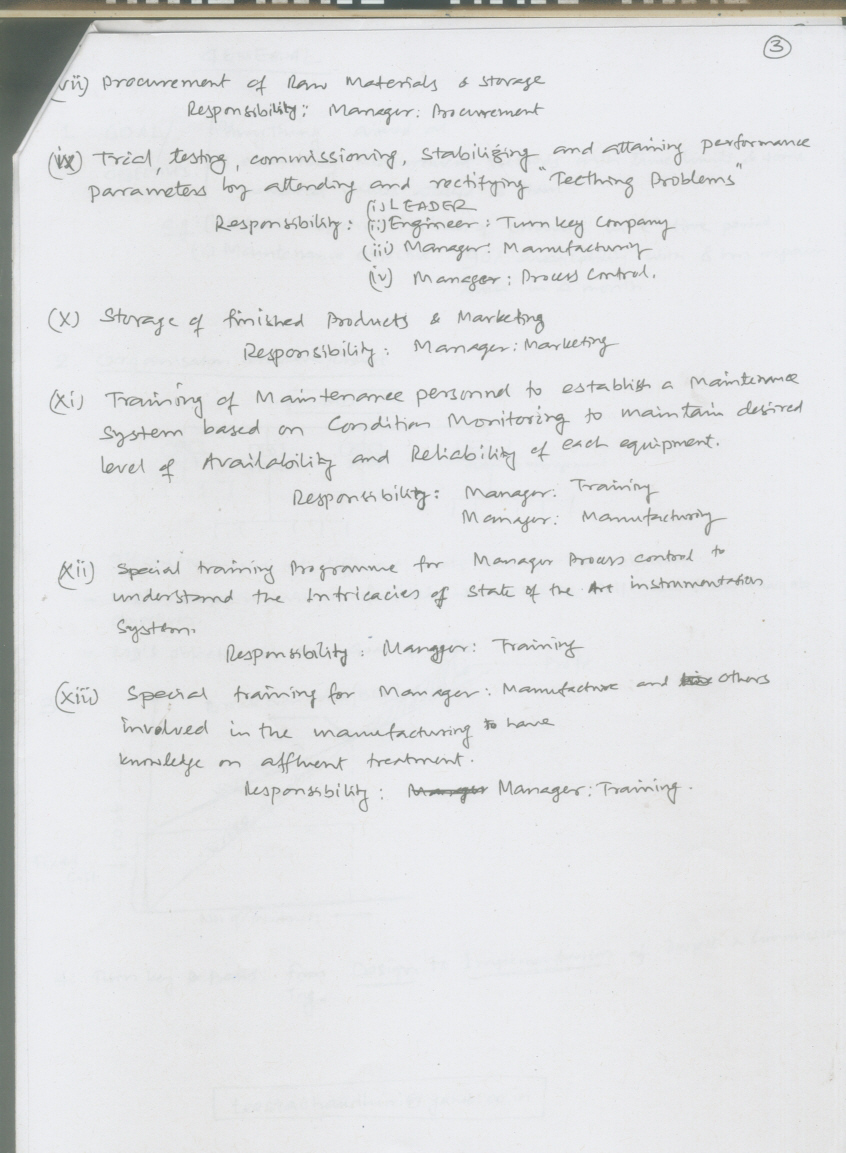 ③
vii) Procurement of Raw Materials & Storage
Responsibility: Manager: Procurement
(ix) Trial, testing, commissioning, stabilizing and attaining performance
parameters by attending and rectifying "Teething Problems"
(i) LEADER
Responsibility: (ii) Engineer: Turnkey Company
(iii) Manager: Manufacturing
(iv) Manager: Process Control.
(x) Storage of finished Products & Marketing
Responsibility: Manager: Marketing
(xi) Training of Maintenance personnel to establish a Maintenance
System based on Condition Monitoring to maintain desired
level of Availability and Reliability of each equipment.
Responsibility: Manager: Training
Manager: Manufacturing
(xii) Special training Programme for Manager Process control to
understand the Intricacies of State of the Art instrumentation
System.
Responsibility: Manager: Training
(xiii) Special training for Manager: Manufacture and others
involved in the manufacturing to have
knowledge on affluent treatment.
Responsibility: Manager Manager: Training.